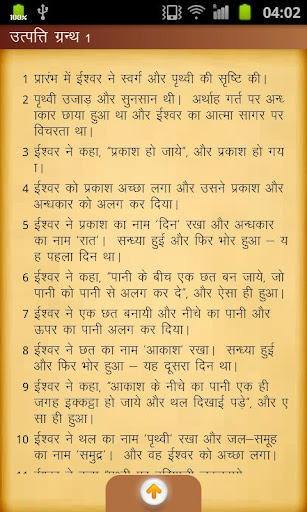 100%
04:02
उत्पत्ति ग्रन्थ 1
1 प्रारंभ में ईश्वर ने स्वर्ग और पृथ्वी की सृष्टि की।
2 पृथ्वी उजाड़ और सुनसान थी। अर्थाह गर्त पर अन्ध
कार छाया हुआ था और ईश्वर का आत्मा सागर पर
विचरता था।
3 ईश्वर ने कहा, "प्रकाश हो जाये", और प्रकाश हो गय
ा।
4 ईश्वर को प्रकाश अच्छा लगा और उसने प्रकाश और
अन्धकार को अलग कर दिया।
5 ईश्वर ने प्रकाश का नाम 'दिन' रखा और अन्धकार
का नाम 'रात'। सन्ध्या हुई और फिर भोर हुआ – य
ह पहला दिन था।
6 ईश्वर ने कहा, "पानी के बीच एक छत बन जाये, जो
पानी को पानी से अलग कर दे", और ऐसा ही हुआ।
7 ईश्वर ने एक छत बनायी और नीचे का पानी और
ऊपर का पानी अलग कर दिया।
8 ईश्वर ने छत का नाम 'आकाश' रखा। सन्ध्या हुई
और फिर भोर हुआ – यह दूसरा दिन था।
9 ईश्वर ने कहा, "आकाश के नीचे का पानी एक ही
जगह इक्कट्ठा हो जाये और थल दिखाई पड़े", और ए
सा ही हुआ।
10 ईश्वर ने थल का नाम 'पृथ्वी' रखा और जल–समूह
का नाम 'समुद्र'। और वह ईश्वर को अच्छा लगा।